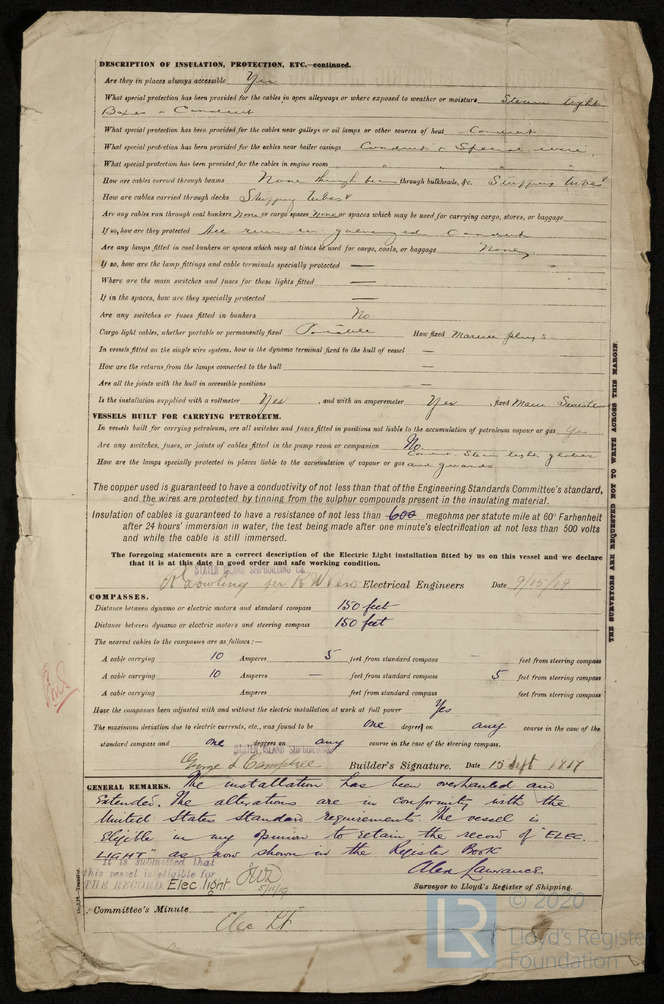 DESCRIPTION OF INSULATION, PROTECTION, ETC.—continued.
Are they in places always accessible Yes
What special protection has been provided for the cables in open alleyways or where exposed to weather or moisture Steam tight
Boxes & Conduit
What special protection has been provided for the cables near galleys or oil lamps or other sources of heat Conduit
What special protection has been provided for the cables near boiler casings Conduit & Special wire.
What special protection has been provided for the cables in engine room " " " "
How are cables carried through beams None through beams through bulkheads, &c. Stuffing tubes
How are cables carried through decks Stuffing tubes
Are any cables run through coal bunkers None or cargo spaces None or spaces which may be used for carrying cargo, stores, or baggage
If so, how are they protected All run in galvanized Conduit
Are any lamps fitted in coal bunkers or spaces which may at times be used for cargo, coals, or baggage None
If so, how are the lamp fittings and cable terminals specially protected —
Where are the main switches and fuses for these lights fitted —
If in the spaces, how are they specially protected —
Are any switches or fuses fitted in bunkers No
Cargo light cables, whether portable or permanently fixed Portable How fixed Marine plugs
In vessels fitted on the single wire system, how is the dynamo terminal fixed to the hull of vessel —
How are the returns from the lamps connected to the hull —
Are all the joints with the hull in accessible positions —
Is the installation supplied with a voltmeter Yes , and with an amperemeter Yes , fixed Main
VESSELS BUILT FOR CARRYING PETROLEUM.
In vessels built for carrying petroleum, are all switches and fuses fitted in positions not liable to the accumulation of petroleum vapour or gas Yes
Are any switches, fuses, or joints of cables fitted in the pump room or companion No
How are the lamps specially protected in places liable to the accumulation of vapour or gas Steam tight globes
and guards
The copper used is guaranteed to have a conductivity of not less than that of the Engineering Standards Committee's standard,
and the wires are protected by tinning from the sulphur compounds present in the insulating material.
Insulation of cables is guaranteed to have a resistance of not less than 600 megohms per statute mile at 60° Farhenheit
after 24 hours' immersion in water, the test being made after one minute's electrification at not less than 500 volts
and while the cable is still immersed.
The foregoing statements are a correct description of the Electric Light installation fitted by us on this vessel and we declare
that it is at this date in good order and safe working condition.
STATEN ISLAND SHIPBUILDING CO.
Electrical Engineers Date 9/15/19
COMPASSES.
Distance between dynamo or electric motors and standard compass 150 feet
Distance between dynamo or electric motors and steering compass 150 feet
The nearest cables to the compasses are as follows:—
A cable carrying 10 Amperes 5 feet from standard compass — feet from steering compass
A cable carrying 10 Amperes — feet from standard compass 5 feet from steering compass
A cable carrying Amperes feet from standard compass feet from steering compass
Have the compasses been adjusted with and without the electric installation at work at full power Yes
The maximum deviation due to electric currents, etc., was found to be one degrees on any course in the case of the
standard compass and one degrees on any course in the case of the steering compass.
STATEN ISLAND SHIPBUILDING
George L Campbell Builder's Signature. Date 15 Sept 1919
GENERAL REMARKS. The installation has been overhauled and
Extended. The alterations are in conformity with the
United States Standard requirements. The vessel is
Eligible in my opinion to retain the record of "ELEC.
LIGHT" as now shown in the Register Book
Alex Lawrance
It is submitted that
this vessel is eligible for
THE RECORD Elec. light 5/11/19
Surveyor to Lloyd's Register of Shipping.
Committee's Minute
Elec Lt
THE SURVEYORS ARE REQUESTED NOT TO WRITE ACROSS THIS MARGIN.
© 2020
LR Lloyd's Register
Foundation